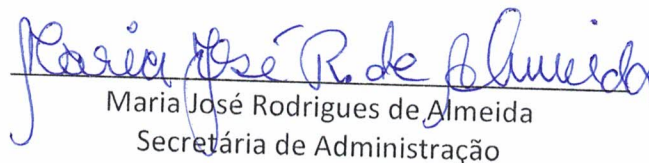 Maria José R. de Almeida
Maria José Rodrigues de Almeida
Secretária de Administração